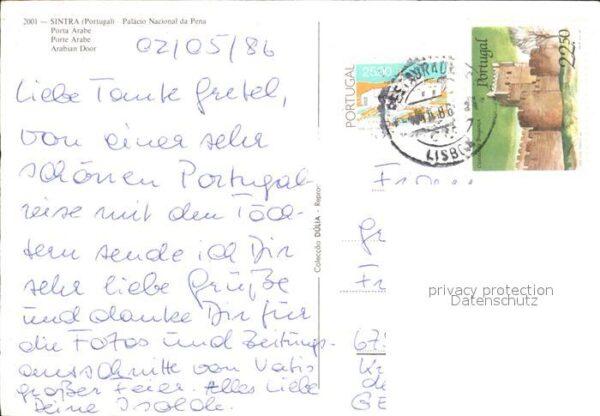 2001 — SINTRA (Portugal) - Palácio Nacional da Pena
Porta Arabe
Porte Arabe
Arabian Door
02/05/86
Liebe Tante Gretel,
von einer sehr
schönen Portugal-
reise mit den Töch-
tern sende ich Dir
sehr liebe Grüße
und danke Dir für
die Fotos und Zeitungs-
ausschnitte von Vatis
großer Feier. Alles Liebe
Deine Isolde.
Colecção DÚLIA - Repro
PORTUGAL
25$00
Portugal
22$50
LISBOA
Fr
Gr
Fr
privacy protection
Datenschutz
67
Kr
de
GE